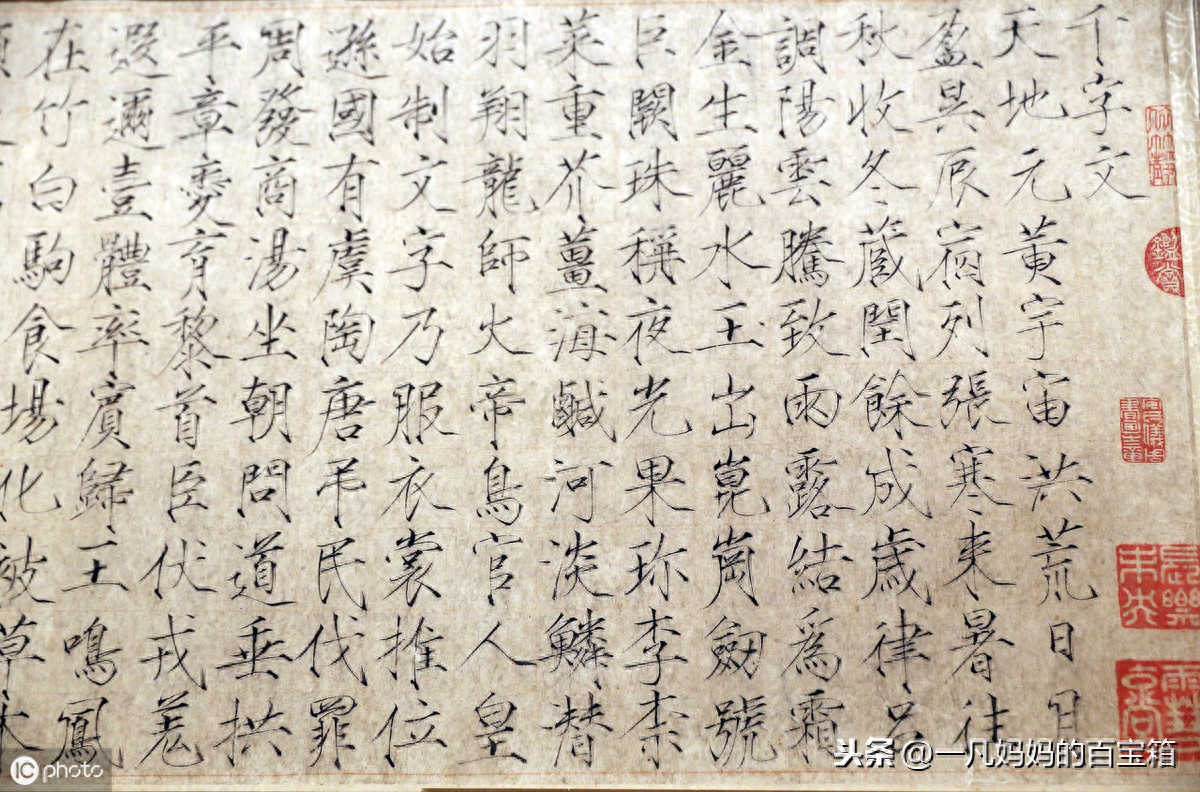 千字文
天地元黄宇宙洪荒日月
盈昃辰宿列張寒来暑往
秋收冬蔵閏餘成歲律吕
調陽雲騰致雨露結爲霜
金生麗水玉出崑崗劔號
巨闕珠稱夜光果珎李柰
菜重芥薑海鹹河淡鱗潜
羽翔龍師火帝鳥官人皇
始制文字乃服衣裳推位
遜國有虞陶唐弔民伐罪
周發商湯坐朝問道垂拱
平章愛育黎首臣伏戎羌
遐邇壹體率賓歸王鳴鳳
在竹白駒食場化被草木
鑑賞
長樂未央
IC photo
头条 @一凡妈妈的百宝箱